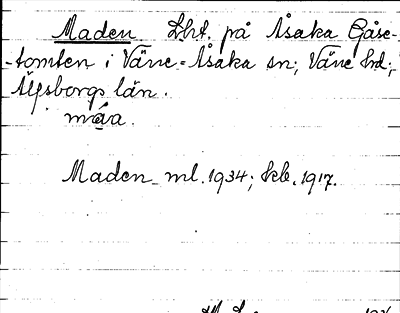 Maden Lht. på Åsaka Gåse-
-tomten i Väne-Åsaka sn; Väne hd;
Älfsborgs län.
måa
Maden ml. 1934; kb. 1917.